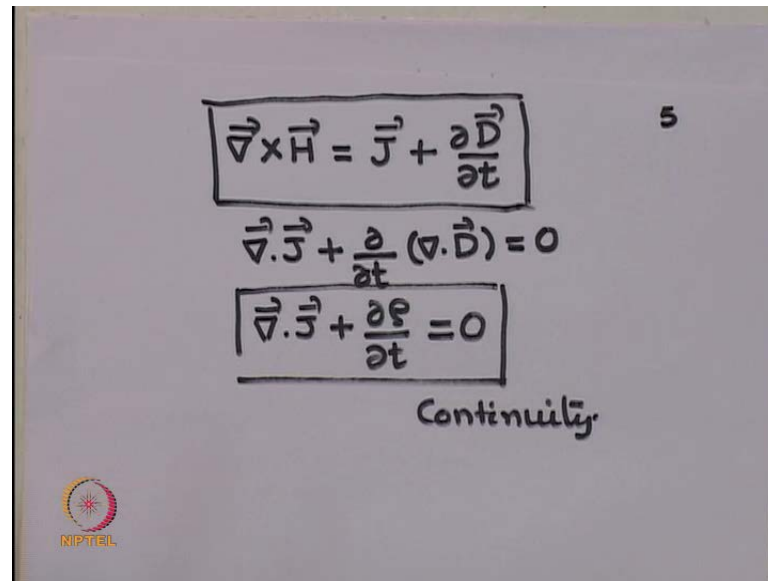 5
∇⃗×H⃗ = J⃗ + ∂D⃗/∂t
∇⃗.J⃗ + ∂/∂t (∇.D⃗) = 0
∇⃗.J⃗ + ∂ρ/∂t = 0
Continuity.
NPTEL